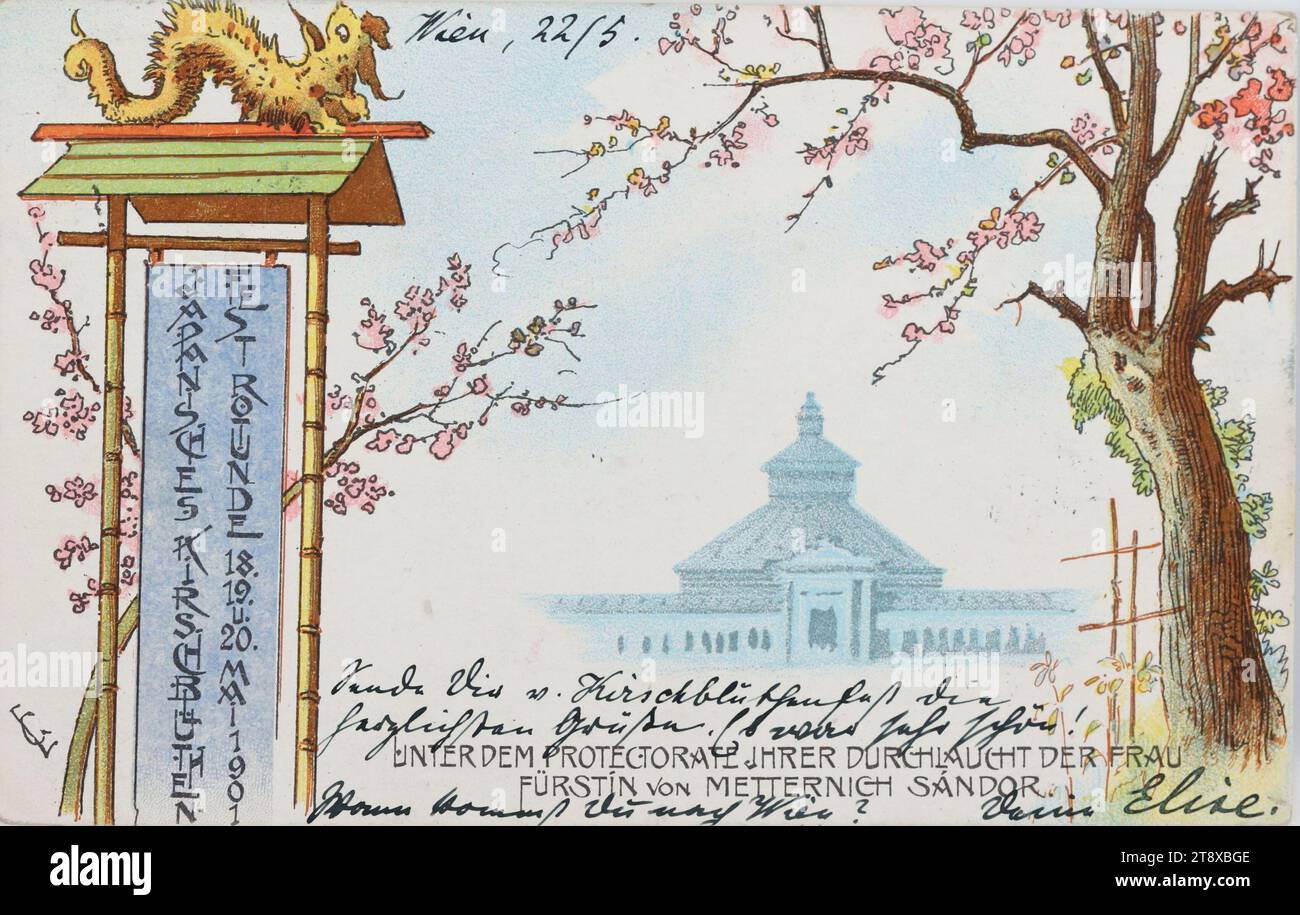 Wien, 22/5.
JAPANISCHES KIRSCHBLUETHEN
FEST ROTUNDE 18. 19. U. 20. MAI 1901
Sende Dir v. Kirschblüthenfest die
herzlichsten Grüße. Es war sehr schön!
UNTER DEM PROTECTORATE IHRER DURCHLAUCHT DER FRAU
FÜRSTIN VON METTERNICH SÁNDOR.
Wann kommst Du nach Wien? Deine Elise.
alamy
Image ID: 2T8XBGE
www.alamy.com